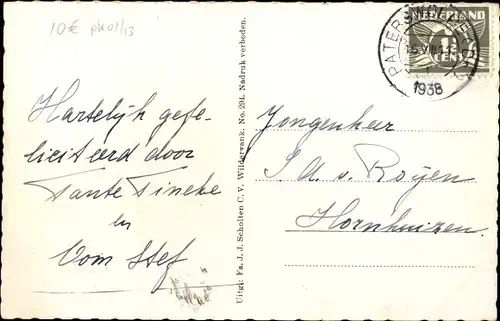 10€ pk01/13
PATERSWOLDE
15 VIII
1938
NEDERLAND
1½
CENT
Hartelijk gefe-
liciteerd door
Tante Tineke
en
Oom Stef
Uitg: Fa. J. J. Scholten C. V., Wildervank. No. 291. Nadruk verboden.
Jongenheer
J. A. v. Royen
Hornhuizen.